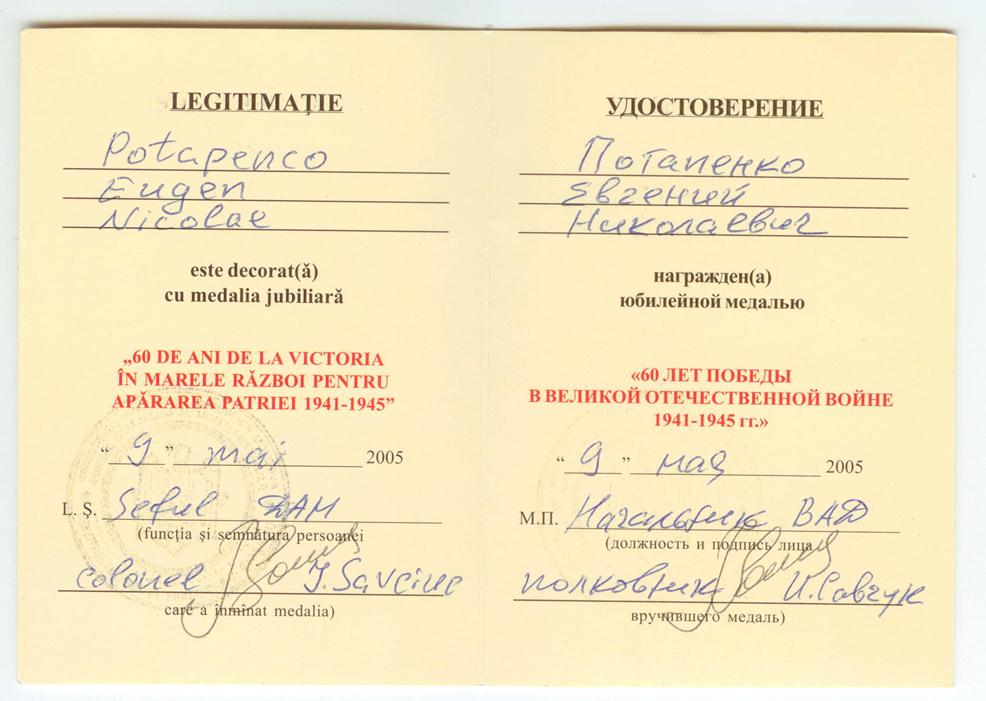 LEGITIMAŢIE
Potapenco
Eugen
Nicolae
este decorat(ă)
cu medalia jubiliară
„60 DE ANI DE LA VICTORIA
ÎN MARELE RĂZBOI PENTRU
APĂRAREA PATRIEI 1941-1945”
“ 9 ” mai 2005
L. Ş. Seful DAM
(funcţia şi semnătura persoanei
colonel I. Savciuc
care a înmînat medalia)
УДОСТОВЕРЕНИЕ
Потапенко
Евгений
Николаевич
награжден(а)
юбилейной медалью
«60 ЛЕТ ПОБЕДЫ
В ВЕЛИКОЙ ОТЕЧЕСТВЕННОЙ ВОЙНЕ
1941-1945 гг.»
“ 9 ” мая 2005
М.П. Начальник ВАД
(должность и подпись лица
полковник И. Савчук
вручившего медаль)